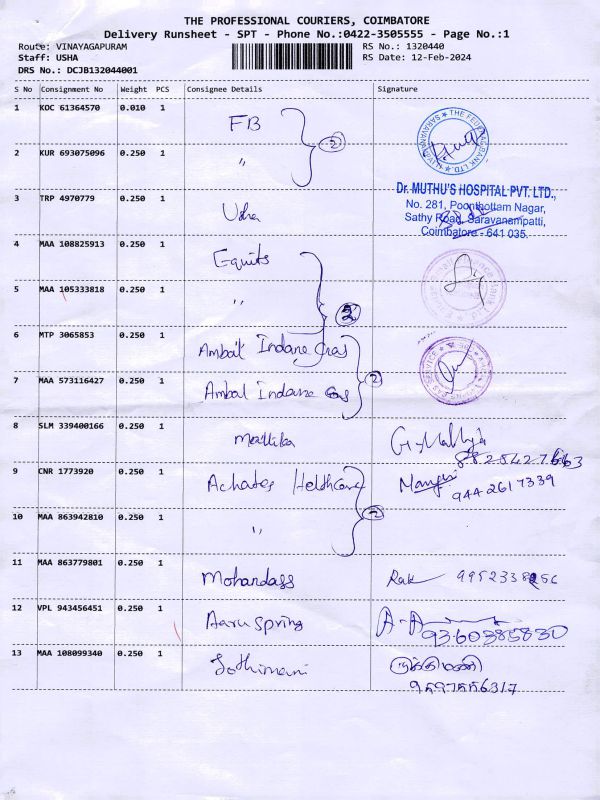 THE PROFESSIONAL COURIERS, COIMBATORE
Delivery Runsheet - SPT - Phone No.:0422-3505555 - Page No.:1
Route: VINAYAGAPURAM
RS No.: 1320440
Staff: USHA
RS Date: 12-Feb-2024
DRS No.: DCJB132044001
S No Consignment No Weight PCS Consignee Details Signature
1 KOC 61364570 0.010 1 FB
2 KUR 693075096 0.250 1 〃
2
Dr. MUTHU'S HOSPITAL PVT. LTD.,
No. 281, Poonthottam Nagar,
Sathy Road, Saravanampatti,
Coimbatore - 641 035.
3 TRP 4970779 0.250 1 Usha
4 MAA 108825913 0.250 1 Equits
5 MAA 105333818 0.250 1 〃
6 MTP 3065853 0.250 1 Ambal Indane Gas
7 MAA 573116427 0.250 1 Ambal Indane Gas
2
8 SLM 339400166 0.250 1 Mallika
9 CNR 1773920 0.250 1 Achates Helthcare
9442617339
10 MAA 863942810 0.250 1 〃
2
11 MAA 863779801 0.250 1 Mohandass
12 VPL 943456451 0.250 1 Aaru Spring A-A
9360385830
13 MAA 108099340 0.250 1 Jothimani